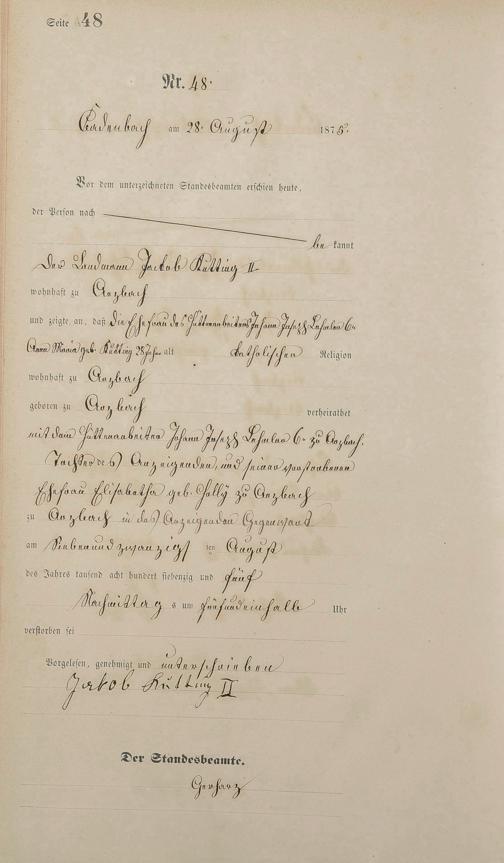 Seite 48
Nr. 48.
Cadenbach am 28. August 1875.
Vor dem unterzeichneten Standesbeamten erschien heute,
der Person nach
be kannt
der Landmann Jakob Kutting II
wohnhaft zu Arzbach
und zeigte an, daß die Ehefrau des Hüttenarbeiters Johann Josef Lehmler 6r
Anna Maria geb. Kutting 28 Jahre alt katholischer Religion
wohnhaft zu Arzbach
geboren zu Arzbach verheirathet
mit dem Hüttenarbeiter Johann Josef Lehmler 6r zu Arzbach.
Tochter des Anzeigenden und seiner verstorbenen
Ehefrau Elisabetha geb. zu Arzbach
zu Arzbach in des Anzeigenden Gegenwart
am Siebenundzwanzigs ten August
des Jahres tausend acht hundert siebenzig und fünf
Nachmittag s um fünfundeinhalb Uhr
verstorben sei
Vorgelesen, genehmigt und unterschrieben
Jakob Kutting II
Der Standesbeamte.
Gerharz